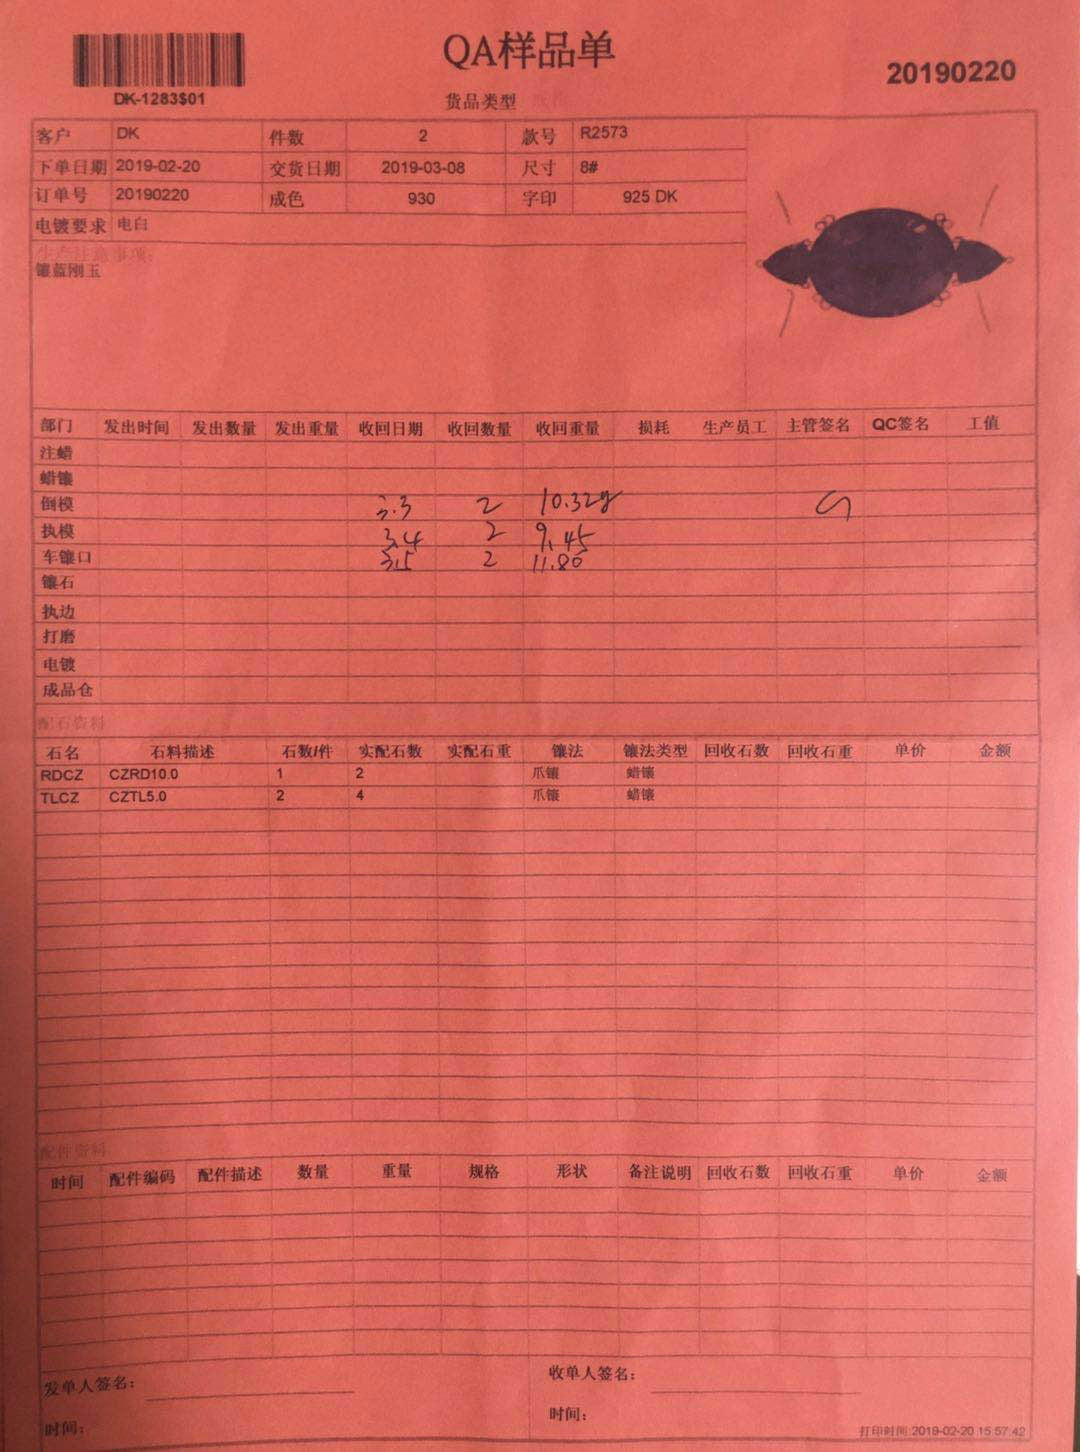 QA样品单
20190220
DK-1283$01
货品类型
客户 DK 件数 2 款号 R2573
下单日期 2019-02-20 交货日期 2019-03-08 尺寸 8#
订单号 20190220 成色 930 字印 925 DK
电镀要求 电白
生产注意事项:
镶蓝刚玉
部门 发出时间 发出数量 发出重量 收回日期 收回数量 收回重量 损耗 生产员工 主管签名 QC签名 工值
注蜡
蜡镶
倒模 3.3 2 10.32g
执模 3.4 2 9.45
车镶口 3.5 2 11.80
镶石
执边
打磨
电镀
成品仓
配石资料
石名 石料描述 石数/件 实配石数 实配石重 镶法 镶法类型 回收石数 回收石重 单价 金额
RDCZ CZRD10.0 1 2 爪镶 蜡镶
TLCZ CZTL5.0 2 4 爪镶 蜡镶
配件资料
时间 配件编码 配件描述 数量 重量 规格 形状 备注说明 回收石数 回收石重 单价 金额
发单人签名: 收单人签名:
时间: 时间:
打印时间:2019-02-20 15:57:42